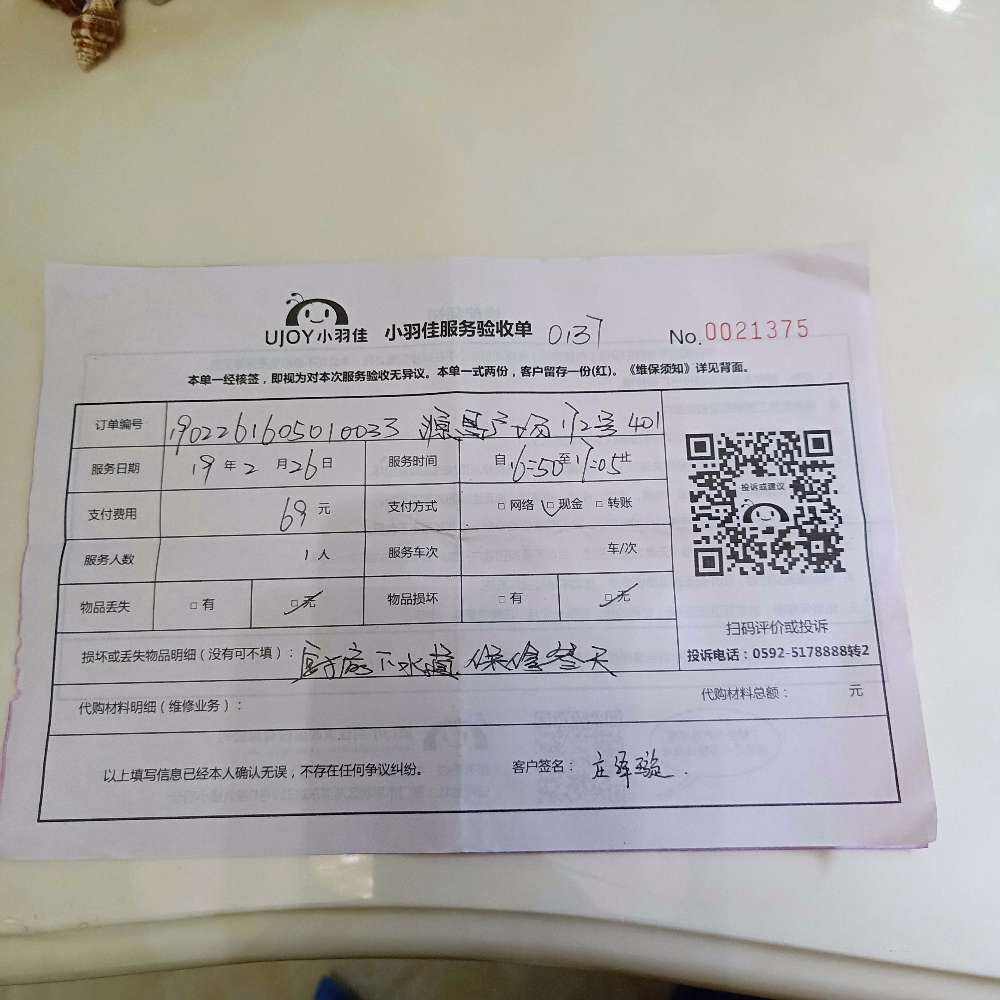 UJOY小羽佳 小羽佳服务验收单 0137 No.0021375
本单一经核签，即视为对本次服务验收无异议。本单一式两份，客户留存一份(红)。《维保须知》详见背面。
订单编号 1902261605010033 源昌广场 172号 401
服务日期 19年2月26日 服务时间 自16:50至17:05止
投诉或建议
支付费用 69元 支付方式 □网络 □现金 □转账
服务人数 1人 服务车次 车/次
物品丢失 □有 □无 物品损坏 □有 □无
扫码评价或投诉
损坏或丢失物品明细（没有可不填）： 厨房下水道 保修 天
投诉电话：0592-5178888转2
代购材料明细（维修业务）： 代购材料总额： 元
以上填写信息已经本人确认无误，不存在任何争议纠纷。 客户签名： 庄